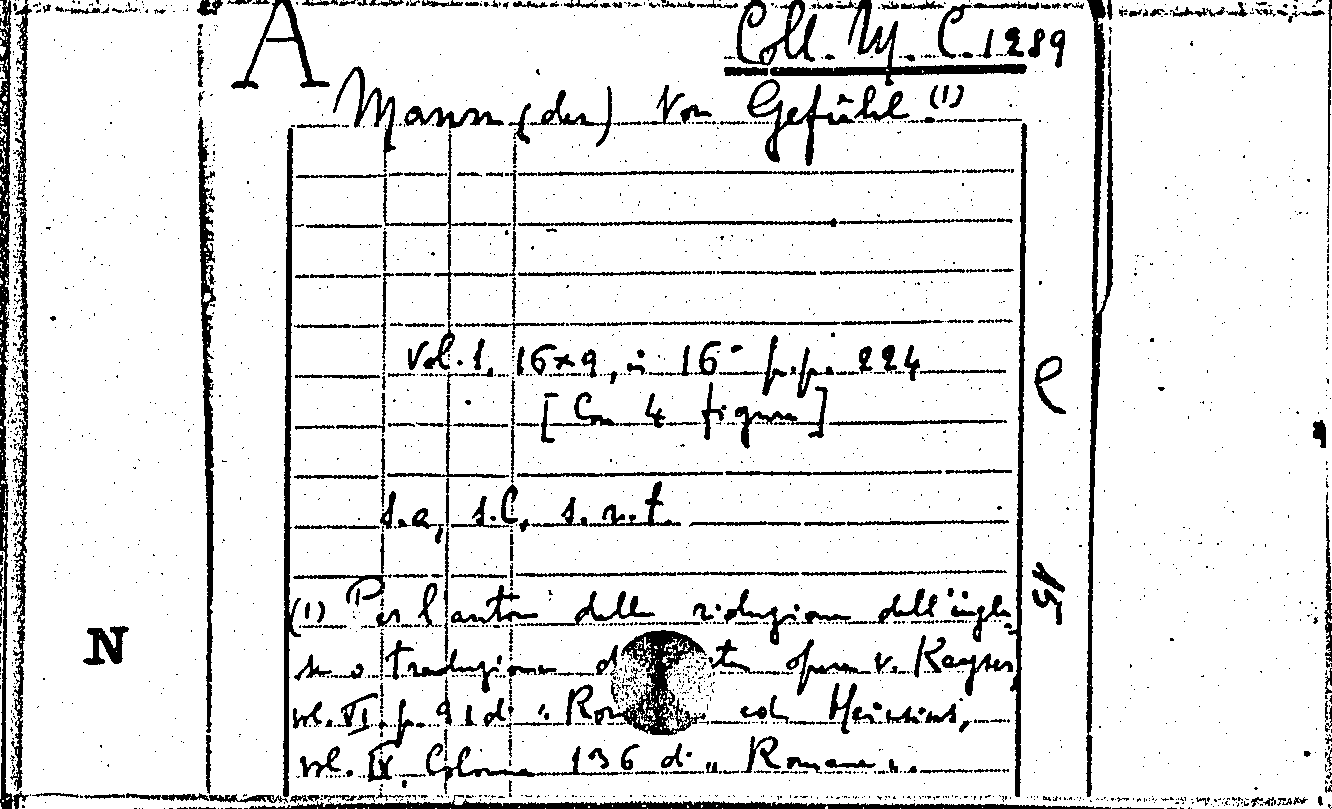 A
Coll. M. C. 1289
Mann (der) von Gefühl. (1)
Vol. 1, 16x9, in 16° p.p. 224
[Con 4 figure]
s.a, s.l, s.n.t.
(1) Per l'autore della riduzione dell'ingle-
se o traduzione opera v. Kayser,
vol. VI. p. 91 di " ed Heinsius,
vol. IX. Colonna 136 di " Romane ".
N